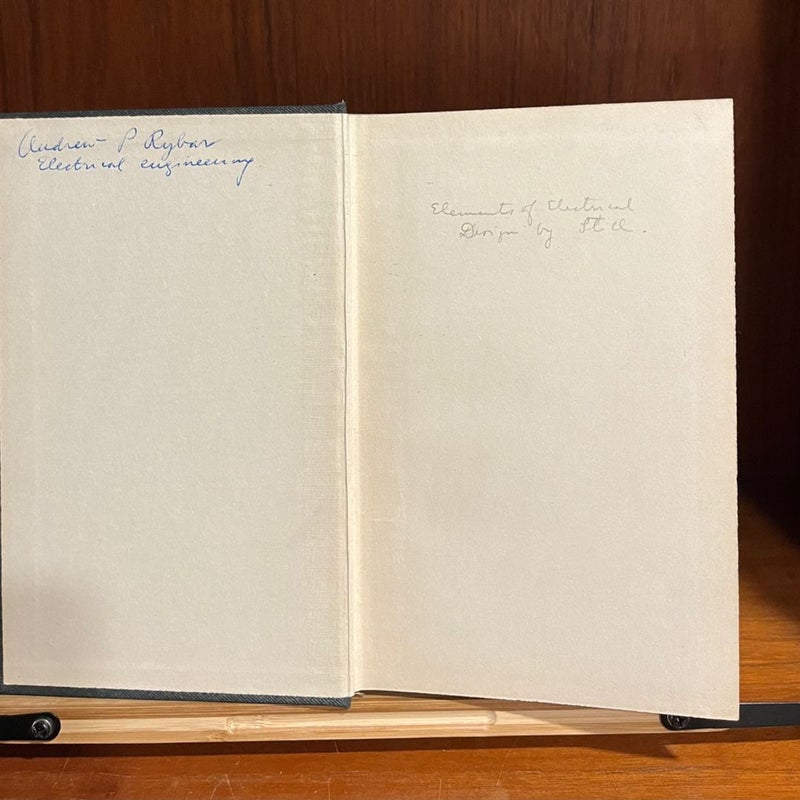 Andrew P Rybar
Electrical engineering.
Elements of Electrical
Design by Still.